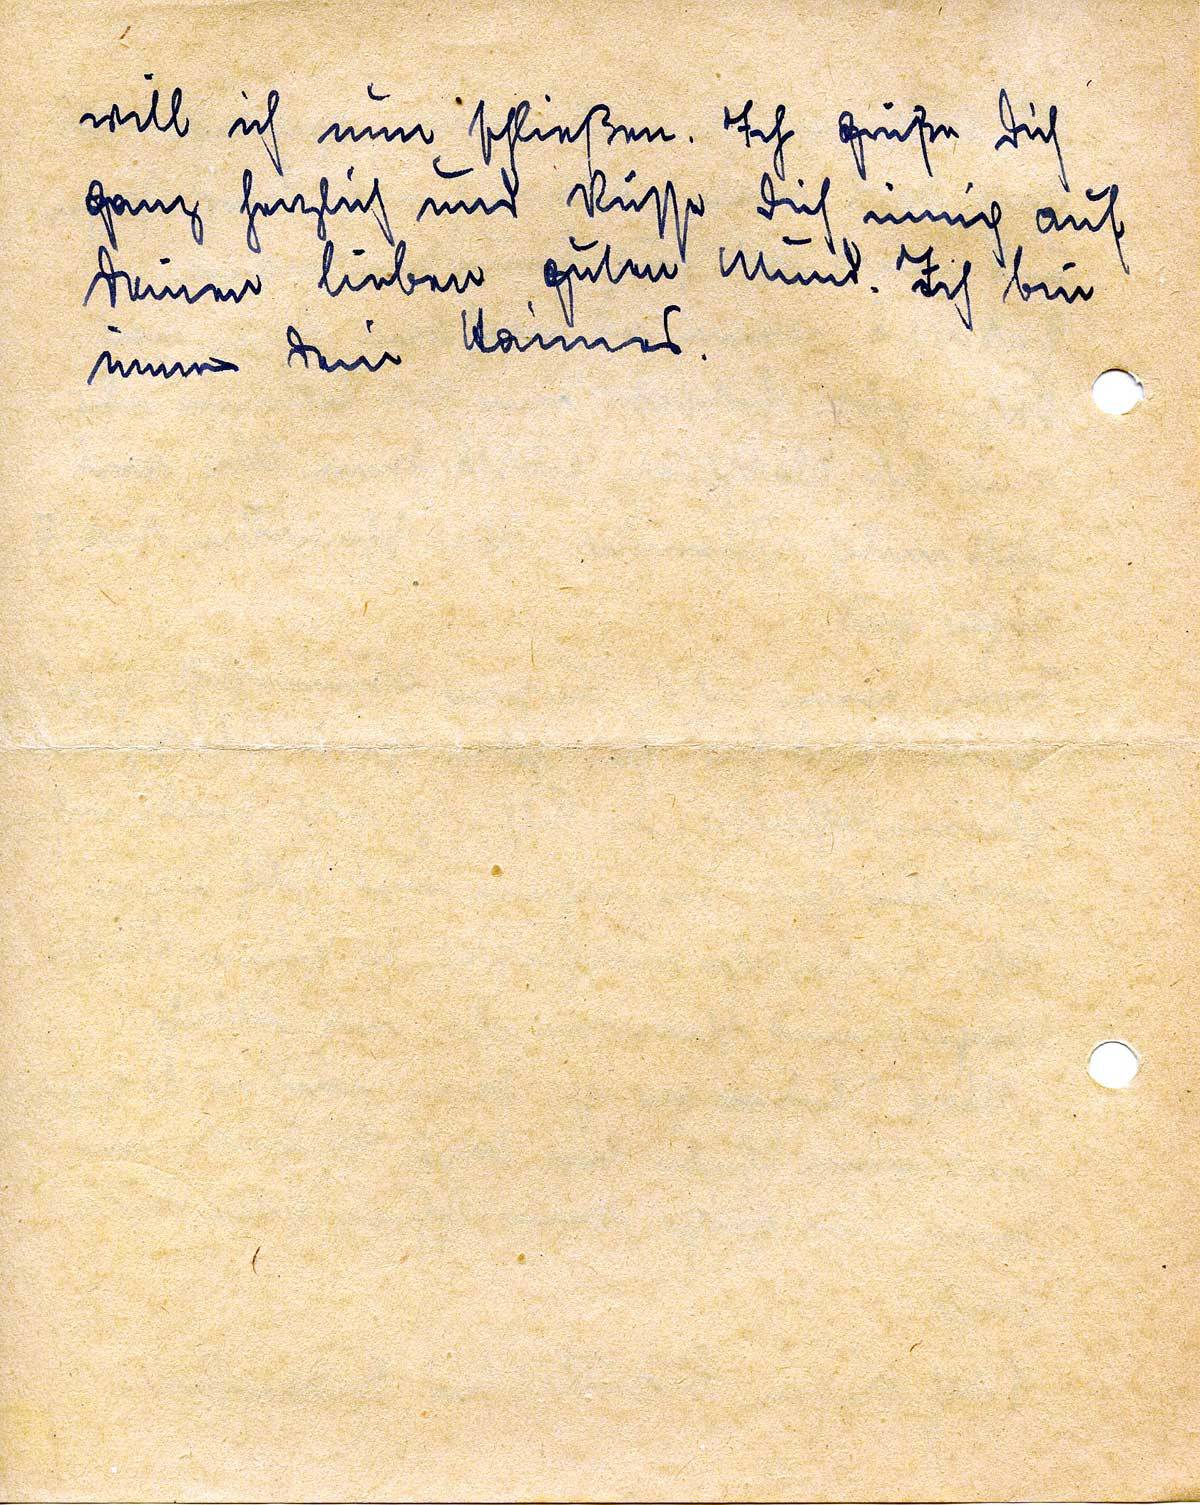 will ich nun schließen. Ich grüße Dich
ganz herzlich und küsse Dich innig auf
Deinen lieben guten Mund. Ich bin
immer Dein Hannes.